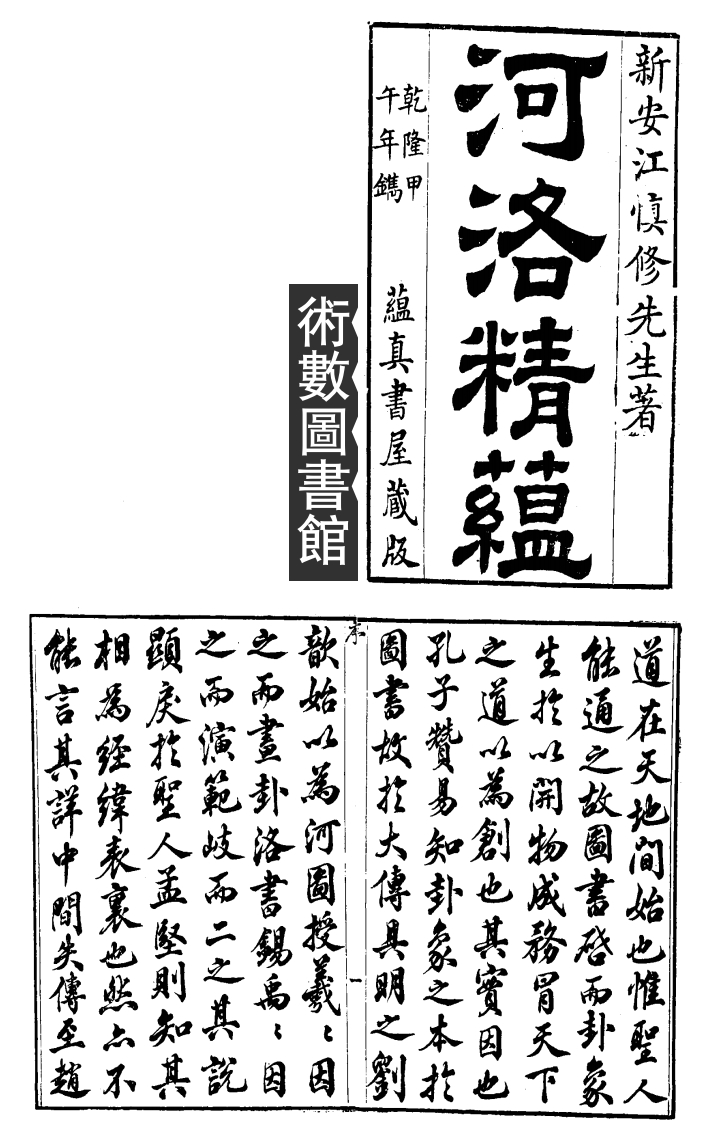 新安江慎修先生著
河洛精蘊
乾隆甲
午年鐫
蘊真書屋藏版
術數圖書館
道在天地間始也惟聖人
能通之故圖書啓而卦象
生於以開物成務冒天下
之道以為創也其實因也
孔子贊易知卦象之本於
圖書故於大傳具明之劉
歆始以為河圖授羲〻因
之而畫卦洛書錫禹〻因
之而演範岐而二之其説
顯戾於聖人孟堅則知其
相為經緯表裏也然亦不
能言其詳中間失傳至趙
序
一